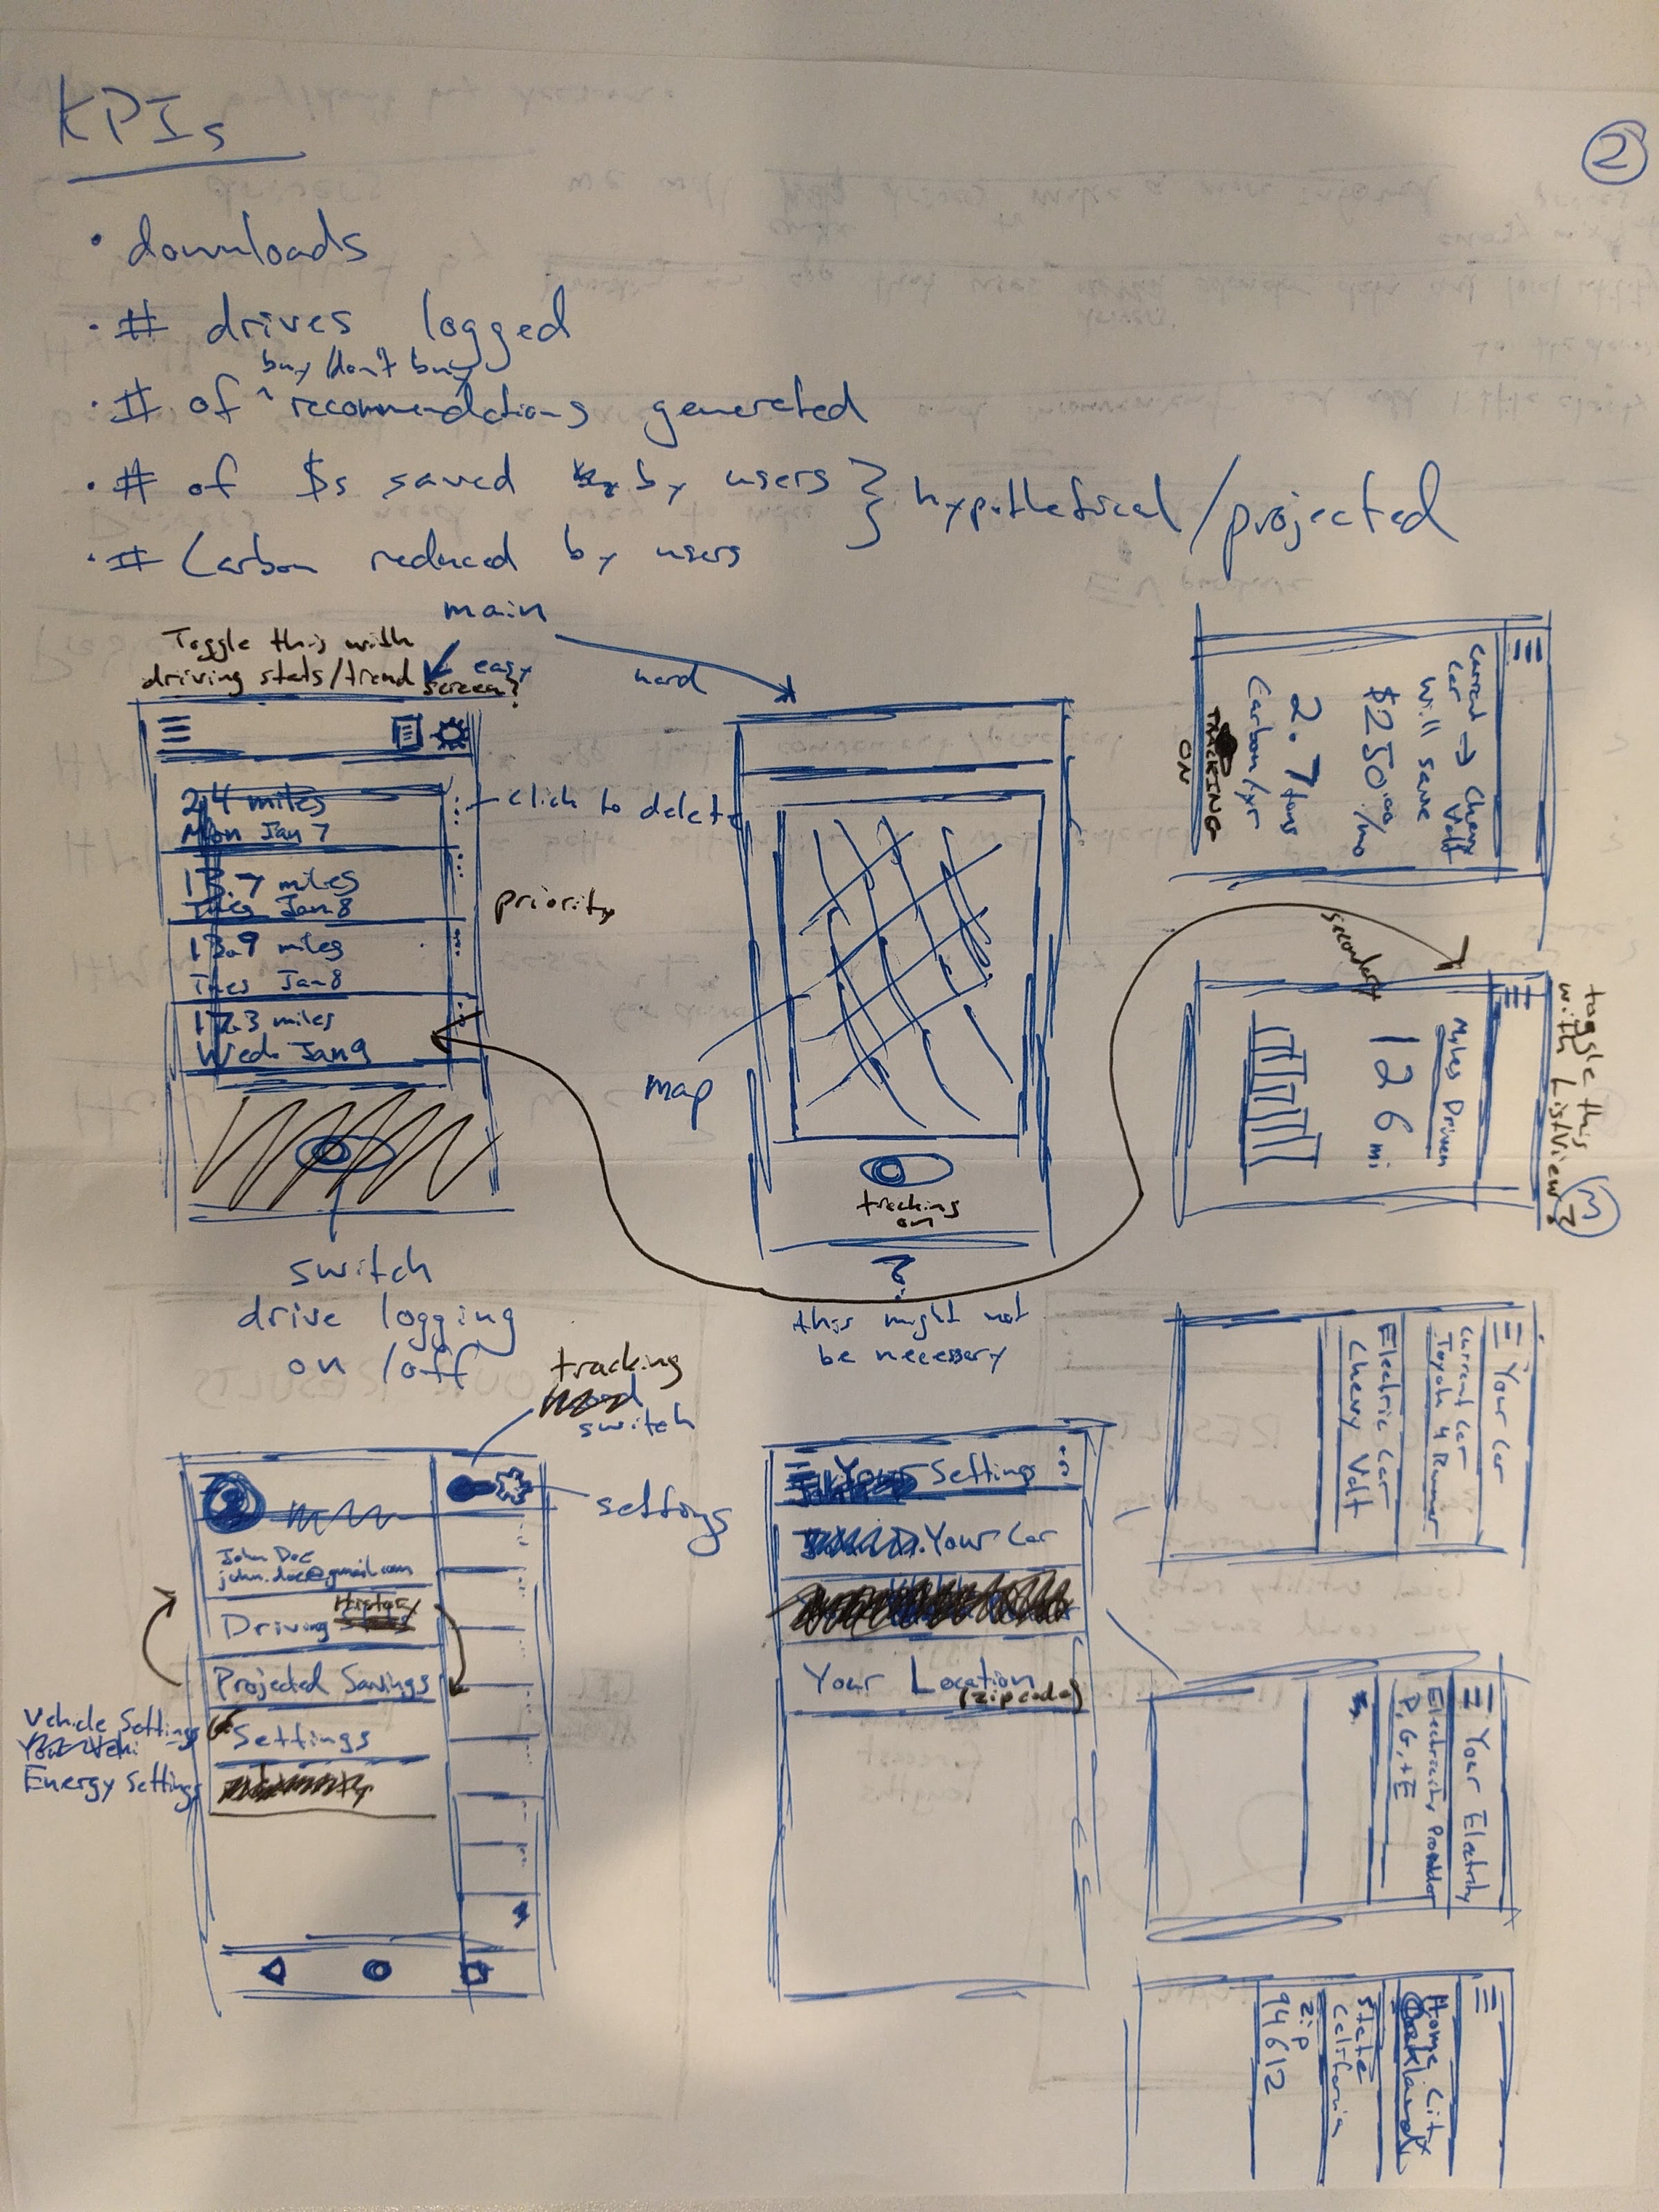 KPIs
2
• downloads
• # drives logged
buy/don't buy
• # of ^ recommendations generated
• # of $s saved by users } hypothetical/projected
• # Carbon reduced by users
main
Toggle this with
driving stats/trend
screen?
easy
hard
24 miles
Mon Jan 7
13.7 miles
Tues Jan 8
13.9 miles
Tues Jan 8
17.3 miles
Wed. Jan 9
click to delete
priority
switch
drive logging
on/off
map
tracking
on
?
this might not
be necessary
Current → Chevy
Car Volt
will save
$250.00/mo
2.7 tons
Carbon/yr
TRACKING
ON
secondary
toggle this
with ListView?
3
Miles Driven
126 mi
tracking
switch
settings
John Doe
john.doe@gmail.com
Driving History
Projected Savings
Settings
Vehicle Settings
Energy Settings
Your Settings
Your Car
Your Location
(zipcode)
Your Car
Current Car
Toyota 4 Runner
Electric Car
Chevy Volt
Your Electricity
Electricity Provider
P,G,+E
Home City
Oakland
State
California
Zip
94612